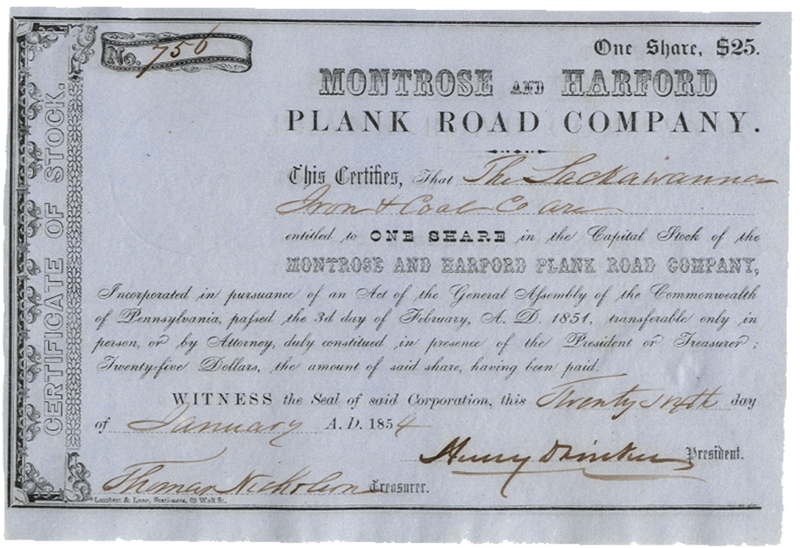 No. 756
One Share, $25.
MONTROSE AND HARFORD
PLANK ROAD COMPANY.
This Certifies, That The Lackawanna
Iron & Coal Co are
entitled to ONE SHARE in the Capital Stock of the
MONTROSE AND HARFORD PLANK ROAD COMPANY,
Incorporated in pursuance of an Act of the General Assembly of the Commonwealth
of Pennsylvania, passed the 3d day of February, A. D. 1851, transferable only in
person, or by Attorney, duly constituted in presence of the President or Treasurer;
Twenty-five Dollars, the amount of said share, having been paid.
WITNESS the Seal of said Corporation, this Twenty sixth day
of January A. D. 1854
Henry Drinker President.
Thomas Nicholson Treasurer.
Lambert & Lane, Stationers, 69 Wall St.
CERTIFICATE OF STOCK.